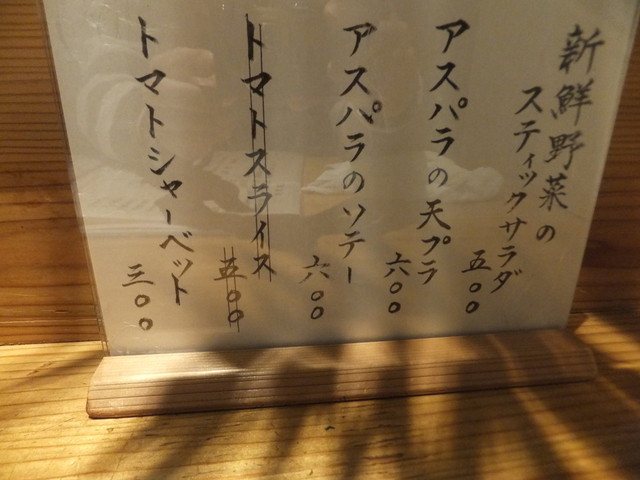 新鮮野菜の
スティックサラダ
五〇〇
アスパラの天プラ
六〇〇
アスパラのソテー
六〇〇
トマトスライス
五〇〇
トマトシャーベット
三〇〇